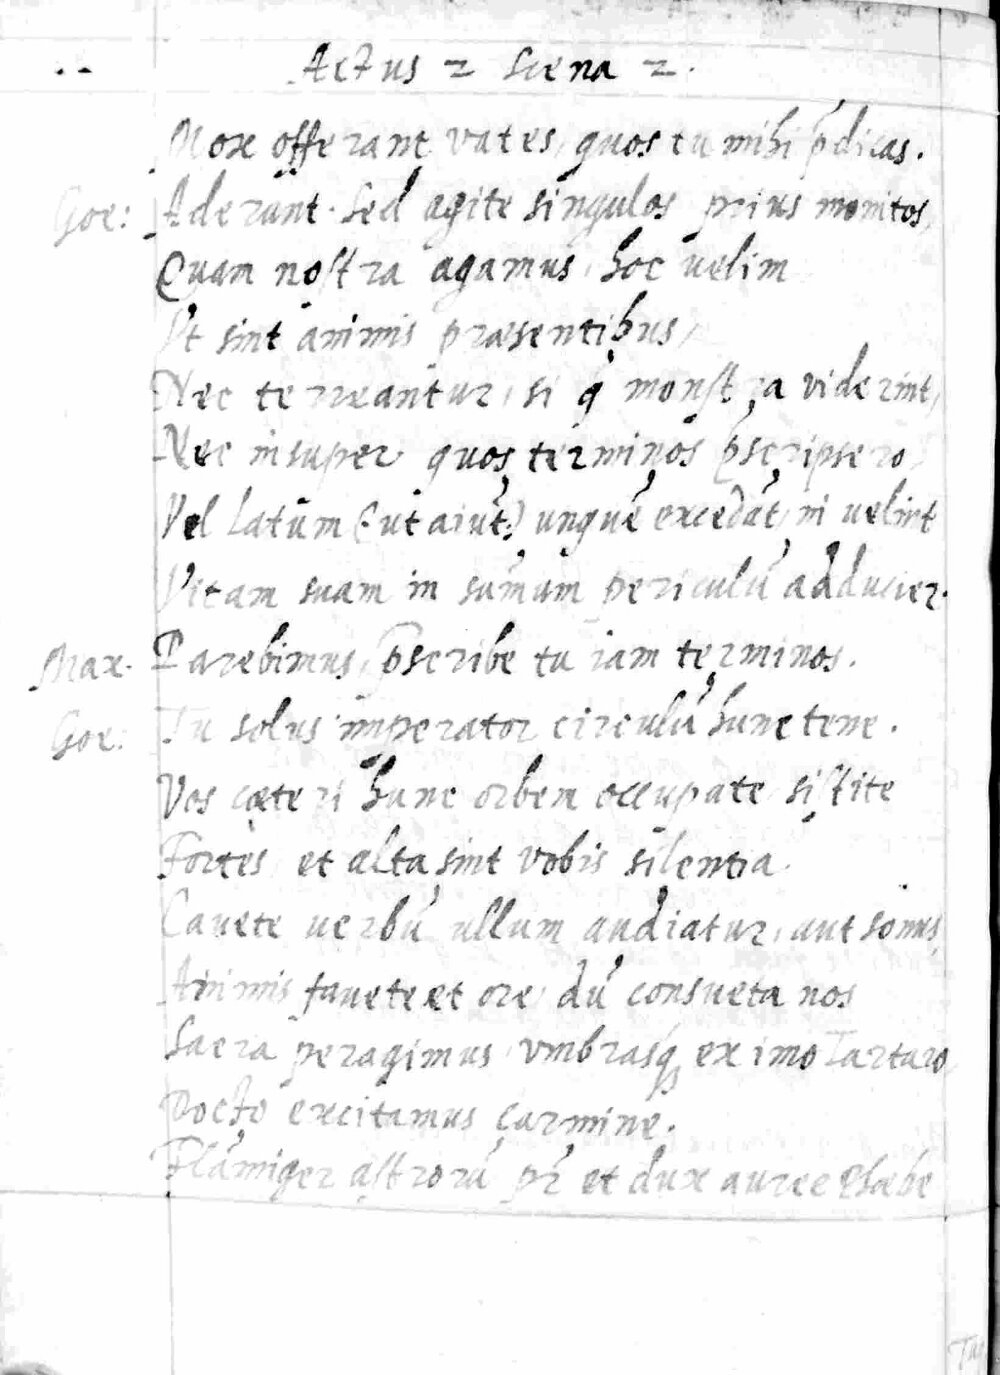 Actus 2 Scena 2.
Mox offerant vates, quos tu mihi p̄dicas.
Goe: Aderunt. Sed agite singulos prius monitos,
Quam nostra agamus, hoc velim
Vt sint animis præsentibus,
Nec terreantur, si q̄ monstra viderint,
Nec insuper quos terminos p̄scripsero,
Vel Latum (: ut aiūt:) unguē excedāt, ni velint
Vitam suam in sum̄um periculū adducier.
Max. Parebimus, p̄scribe tu iam terminos.
Goe: Tu solus imperator circulū hunc tene.
Vos cæteri hunc orbem occupate, sistite
Fortes, et alta sint vobis silentia.
Cavete verbū ullum audiatur, aut sonus,
Animis favete et ore, dū consueta nos
Sacra peragimus, vmbrasq ex imo Tartaro,
Docto excitamus carmine.
Flām̄iger astrorū pr̄ et dux auree Phœbe